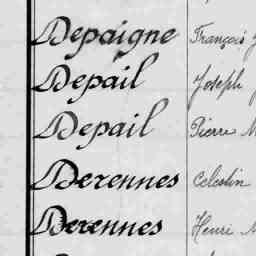 Depaigne François J
Depail Joseph
Depail Pierre M
Derennes Celestin
Derennes Henri M